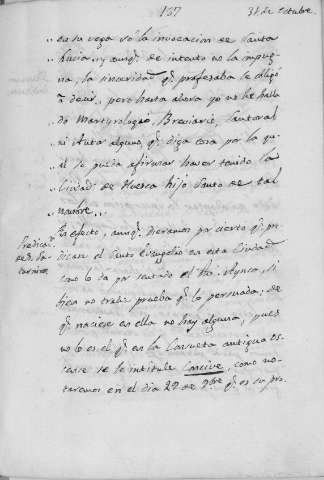 157
31 de Octubre.
,, en su vega só la invocacion de Santa
,, Lucia,, y aunq.e de intento no la impug-
,, na, la sinceridad q.e profesaba le obligó
,, a decir,, pero hasta ahora yo no he halla-
,, do Martyrologio, Breviario, Santoral
,, ni Autor alguno q.e diga cosa por la qu-
,, al se pueda afirmar haver tenido la
,, Ciudad de Huesca hijo Santo de tal
,, nombre.,,
En efecto, aunq.e dieramos por cierto q.e pre-
dicase el Santo Evangelio en esta Ciudad
como lo da por sentado el
no trahe prueba q.e lo persuada; de
q.e naciese en ella no hay alguna, pues
no lo es el q.e en la Consueta antigua
se le intitule Concive, como no-
taremos en el dia 29 de 9bre q.e es su pro-
Predicac.n
de S. Sa-
turnino.